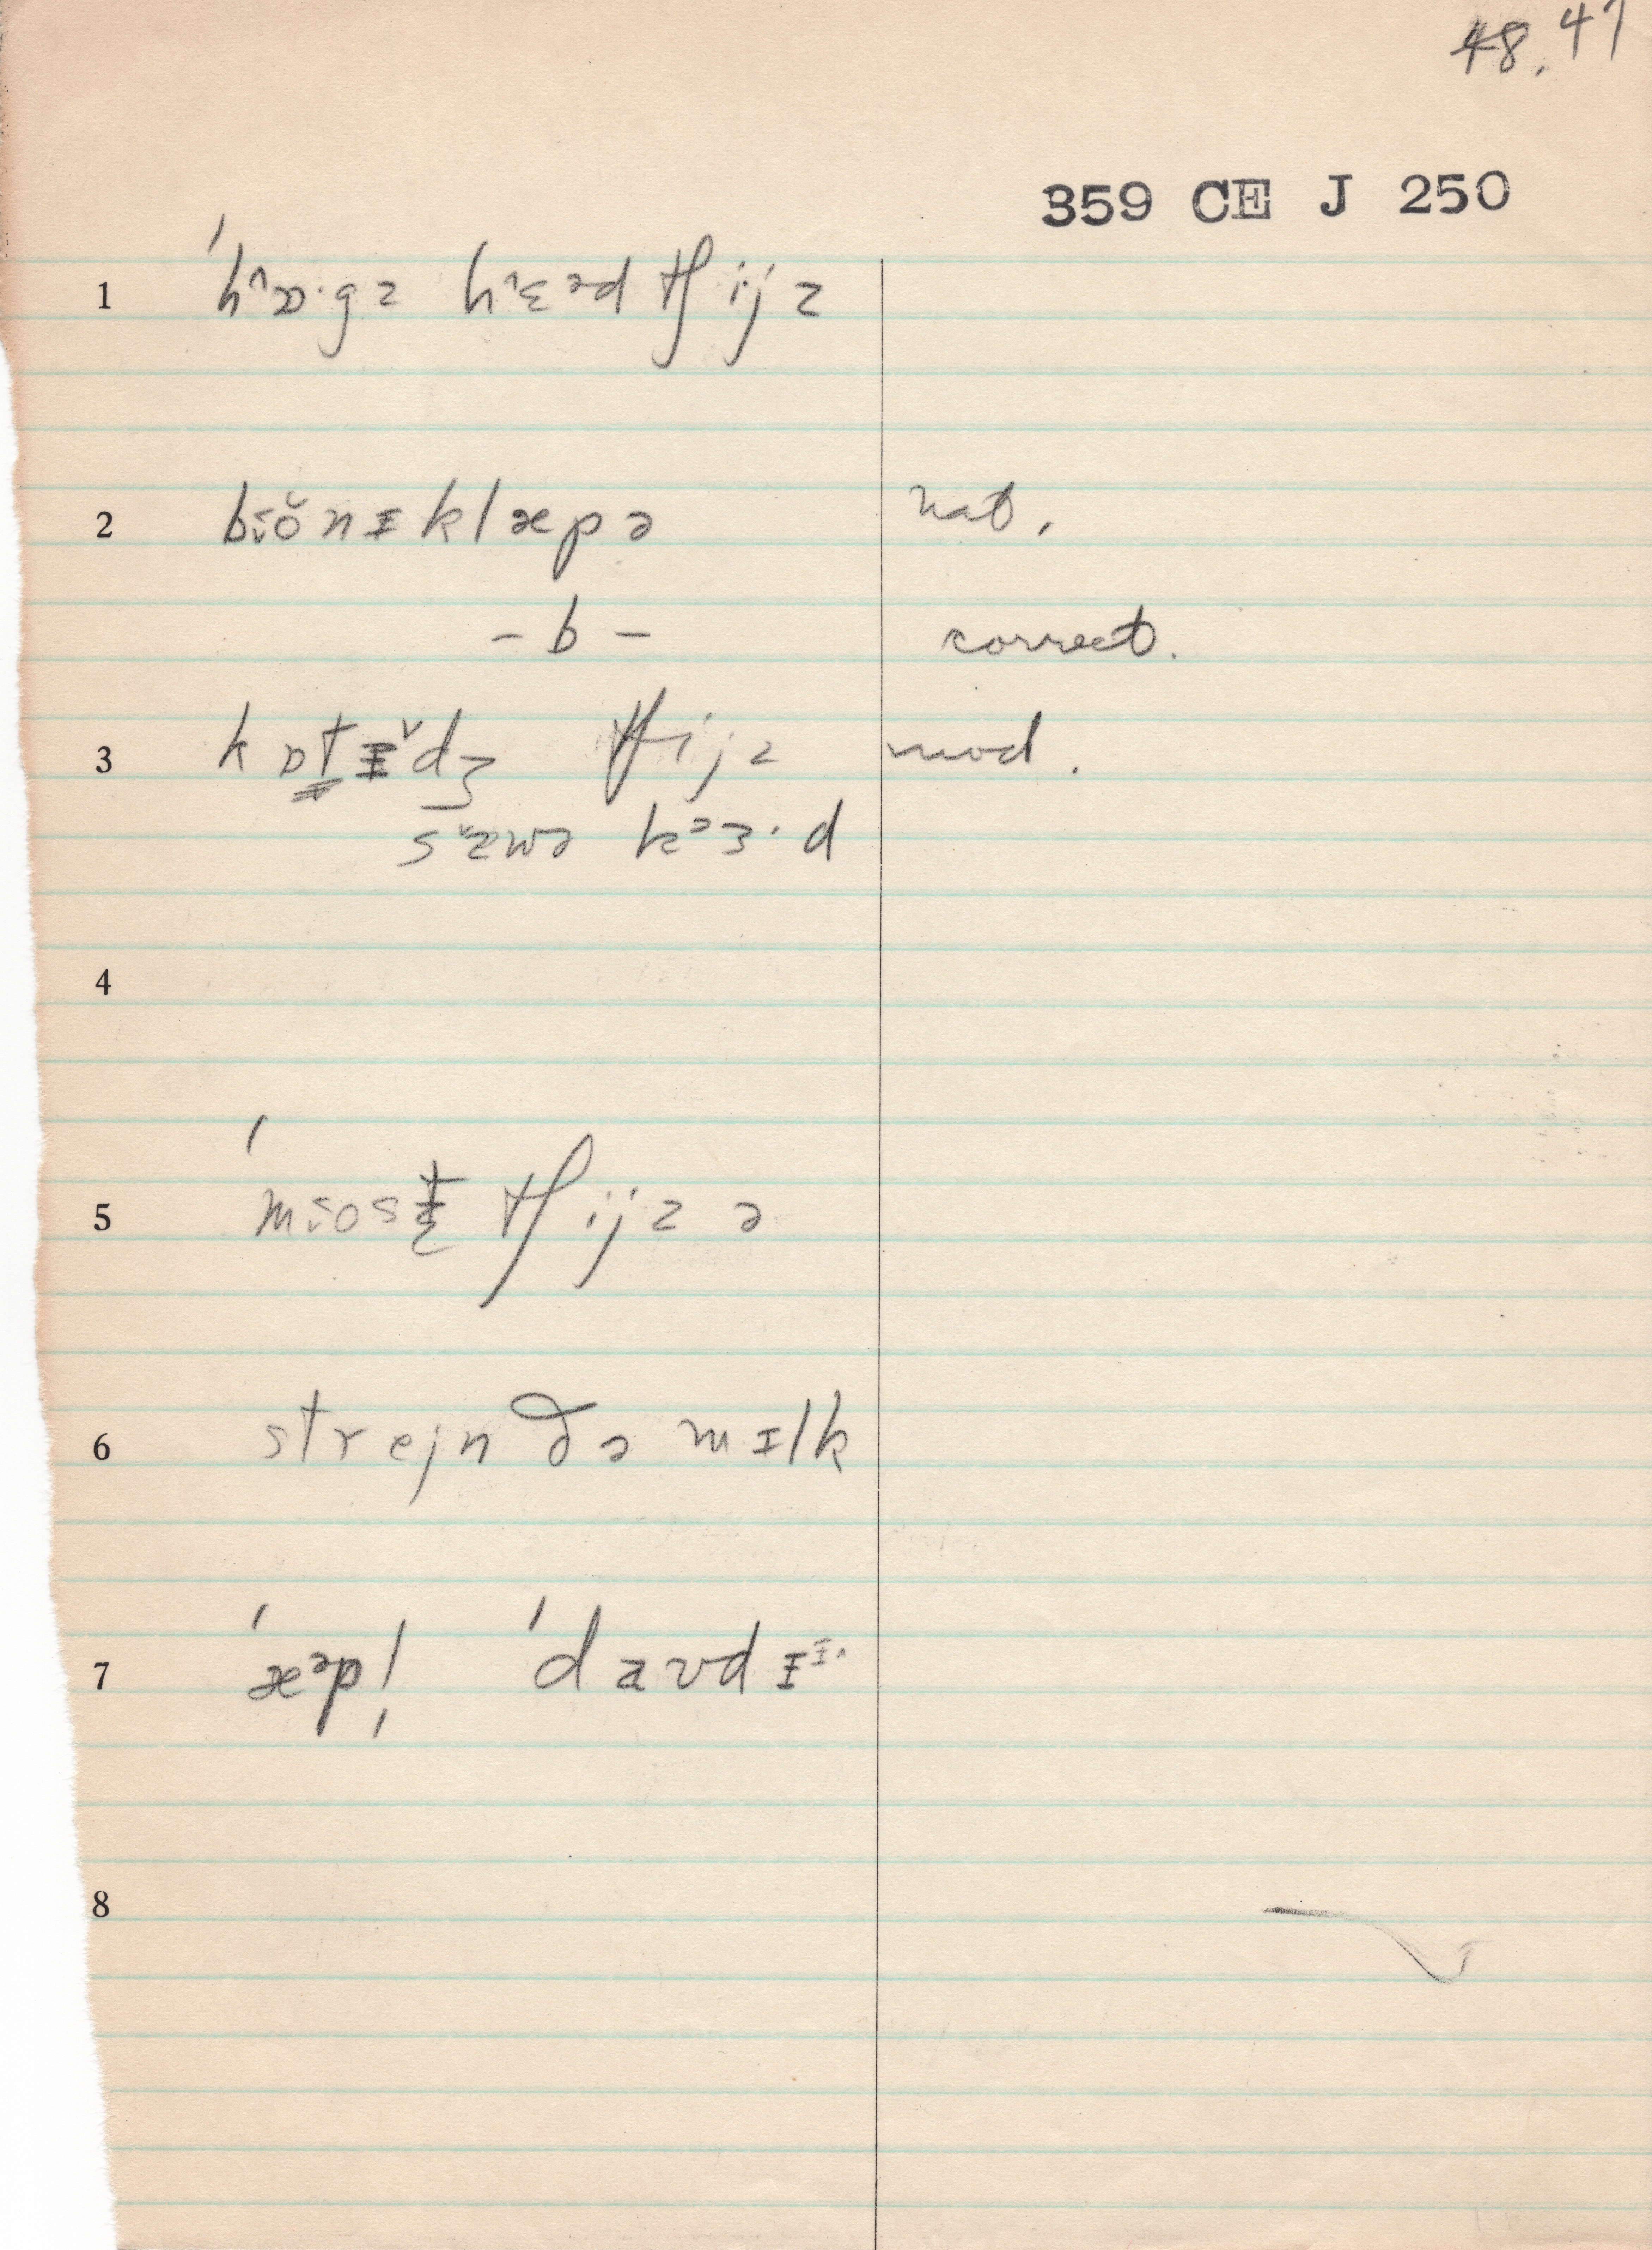 48.47
359 CE J 250
1 ˈhᶺɒ·gz hᶺɛᵊd tʃijz
2 bɪŏnɪklæpə nat.
– b – correct.
3 kɒt̳ɪˇdʒ tʃijz mod.
sˇæwə kᵊɜ·d
4
5 tʃijz ə
6 strejn ðə mɪlk
7 ˈæᵊp! ˈdavdɪᶦ·
8